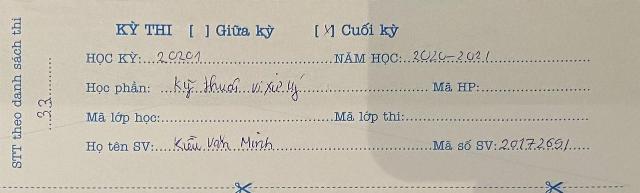 KỲ THI [ ] Giữa kỳ [x] Cuối kỳ
HỌC KỲ: 20201 NĂM HỌC: 2020-2021
Học phần: Kỹ thuật vi xử lý Mã HP:
Mã lớp học: Mã lớp thi:
Họ tên SV: Kiều Văn Minh Mã số SV: 20172691
STT theo danh sách thi 33